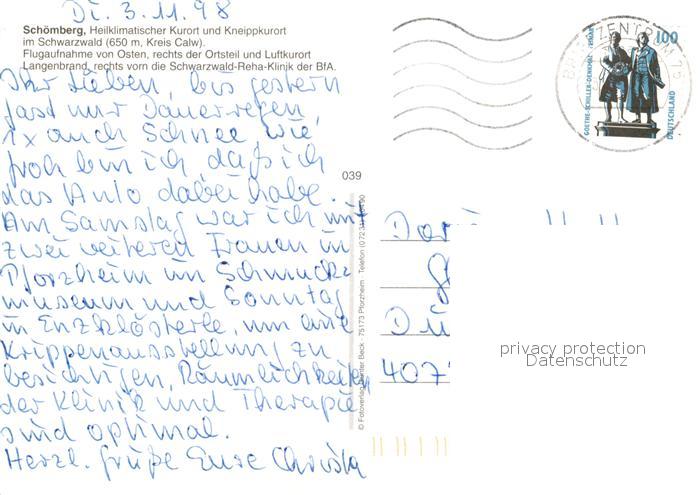 Di. 3.11.98
Schömberg, Heilklimatischer Kurort und Kneippkurort
im Schwarzwald (650 m, Kreis Calw).
Flugaufnahme von Osten, rechts der Ortsteil und Luftkurort
Langenbrand, rechts vorn die Schwarzwald-Reha-Klinik der BfA.
Ihr Lieben, bis gestern
fast nur Dauerregen,
1x auch Schnee, wie
froh bin ich, daß ich
das Auto dabei habe.
Am Samstag war ich mit
zwei weiteren Frauen in
Pforzheim im Schmuck-
museum und Sonntag
in Enzklösterle, um eine
Krippenausstellung zu
besichtigen, Räumlichkeiten
der Klinik und Therapie
sind optimal.
Herzl. Grüße Eure Christa
039
© Fotoverlag Günter Beck · 75173 Pforzheim · Telefon (0 72 31)
BRIEFZENTRUM 75
100
GOETHE-SCHILLER-DENKMAL WEIMAR
DEUTSCHLAND
Dü
407
privacy protection
Datenschutz